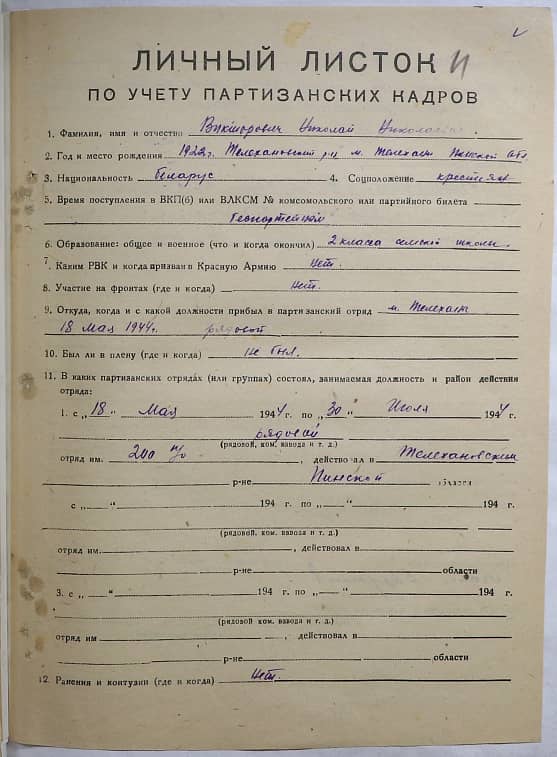 ЛИЧНЫЙ ЛИСТОК
ПО УЧЕТУ ПАРТИЗАНСКИХ КАДРОВ
1. Фамилия, имя и отчество Викторович Николай Николаевич
2. Год и место рождения 1922г. Телехановский р-н м. Телеханы Пинской обл.
3. Национальность беларус 4. Соцположение крестьян
5. Время поступления в ВКП(б) или ВЛКСМ № комсомольского или партийного билета
беспартейный
6. Образование: общее и военное (что и когда окончил) 2 класса сельской школы.
7. Каким РВК и когда призван в Красную Армию Нет.
8. Участие на фронтах (где и когда) Нет.
9. Откуда, когда и с какой должности прибыл в партизанский отряд м. Телеханы
18 Мая 1944г. рядовой
10. Был ли в плену (где и когда) не был.
11. В каких партизанских отрядах (или группах) состоял, занимаемая должность и район действия
отряда:
1. с „18" Мая 1944 г. по „30" Июля 1944 г.
рядовой
(рядовой, ком. взвода и т. д.)
отряд им. 200 , действовал в Телехановском
р-не Пинской области
с „ " 194 г. по „ " 194 г.
(рядовой, ком. взвода и т. д.)
отряд им. , действовал в
р-не области
3. с „ " 194 г. по „ " 194 г.
(рядовой ком. взвода и т. д.)
отряд им , действовал в
р-не области
12. Ранения и контузии (где и когда) Нет.